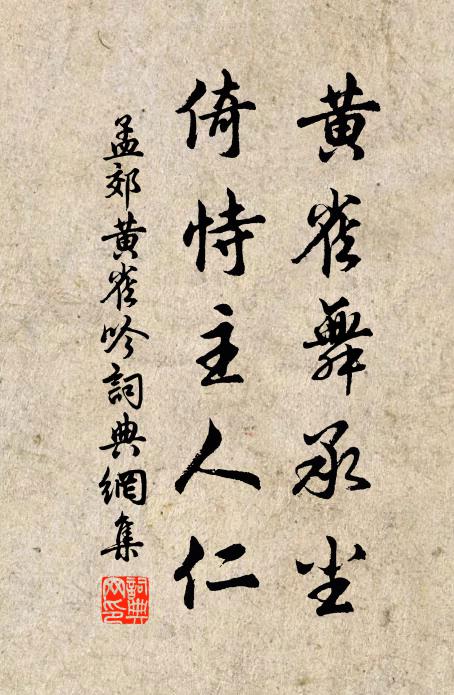 黄雀舞承尘
倚恃主人仁
孟郊黄雀吟詞典網集
詞典
网印